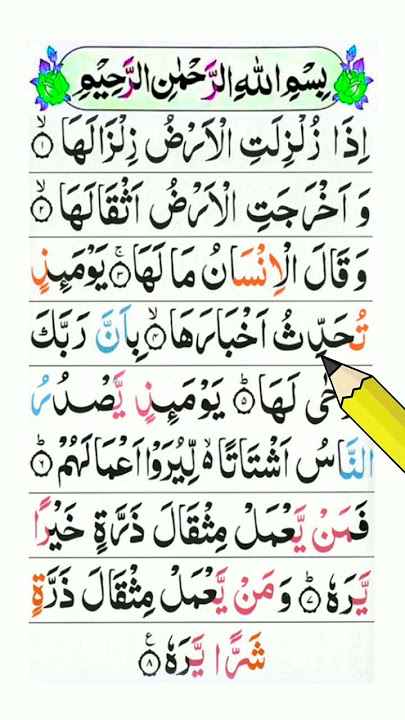 بِسْمِ اللهِ الرَّحْمٰنِ الرَّحِيْمِ
اِذَا زُلْزِلَتِ الْاَرْضُ زِلْزَالَهَا ۙ۝۱
وَ اَخْرَجَتِ الْاَرْضُ اَثْقَالَهَا ۙ۝۲
وَ قَالَ الْاِنْسَانُ مَا لَهَا ۚ۝۳ يَوْمَىِٕذٍ
تُحَدِّثُ اَخْبَارَهَا ۙ۝۴ بِاَنَّ رَبَّكَ
لَهَا ؕ۝۵ يَوْمَىِٕذٍ يَّصْدُرُ
النَّاسُ اَشْتَاتًا ۙ۬ لِّيُرَوْا اَعْمَالَهُمْ ؕ۝۶
فَمَنْ يَّعْمَلْ مِثْقَالَ ذَرَّةٍ خَيْرًا
يَّرَهٗ ؕ۝۷ وَ مَنْ يَّعْمَلْ مِثْقَالَ ذَرَّةٍ
شَرًّا يَّرَهٗ ۝۸ ع